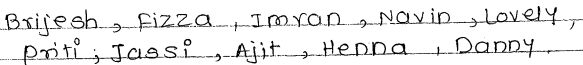 Brijesh, Fizza, Imran, Navin, Lovely,
Priti, Jassi, Ajit, Henna, Danny.